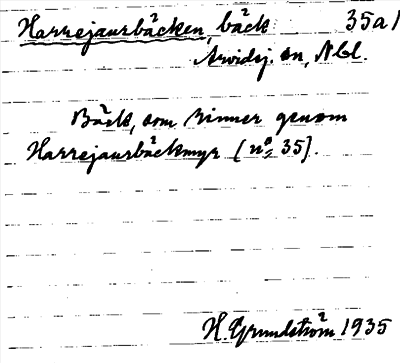 Harrejaurbäcken, bäck 35a/
Arvidsj. sn, Nbl.
Bäck, som rinner genom
Harrejaurbäckmyr (nº 35).
H. Grundström 1935